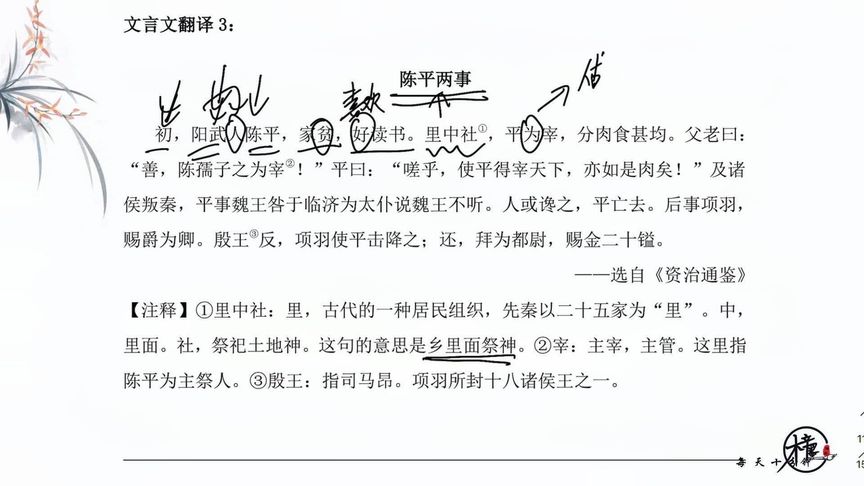 文言文翻译 3：
陈平两事
喜欢
初，阳武人陈平，家贫，好读书。里中社①，平为宰，分肉食甚均。父老曰：
“善，陈孺子之为宰②！”平曰：“嗟乎，使平得宰天下，亦如是肉矣！”及诸
侯叛秦，平事魏王咎于临济为太仆说魏王不听。人或谗之，平亡去。后事项羽，
赐爵为卿。殷王③反，项羽使平击降之；还，拜为都尉，赐金二十镒。
——选自《资治通鉴》
【注释】①里中社：里，古代的一种居民组织，先秦以二十五家为“里”。中，
里面。社，祭祀土地神。这句的意思是乡里面祭神。②宰：主宰，主管。这里指
陈平为主祭人。③殷王：指司马昂。项羽所封十八诸侯王之一。
每天十分钟